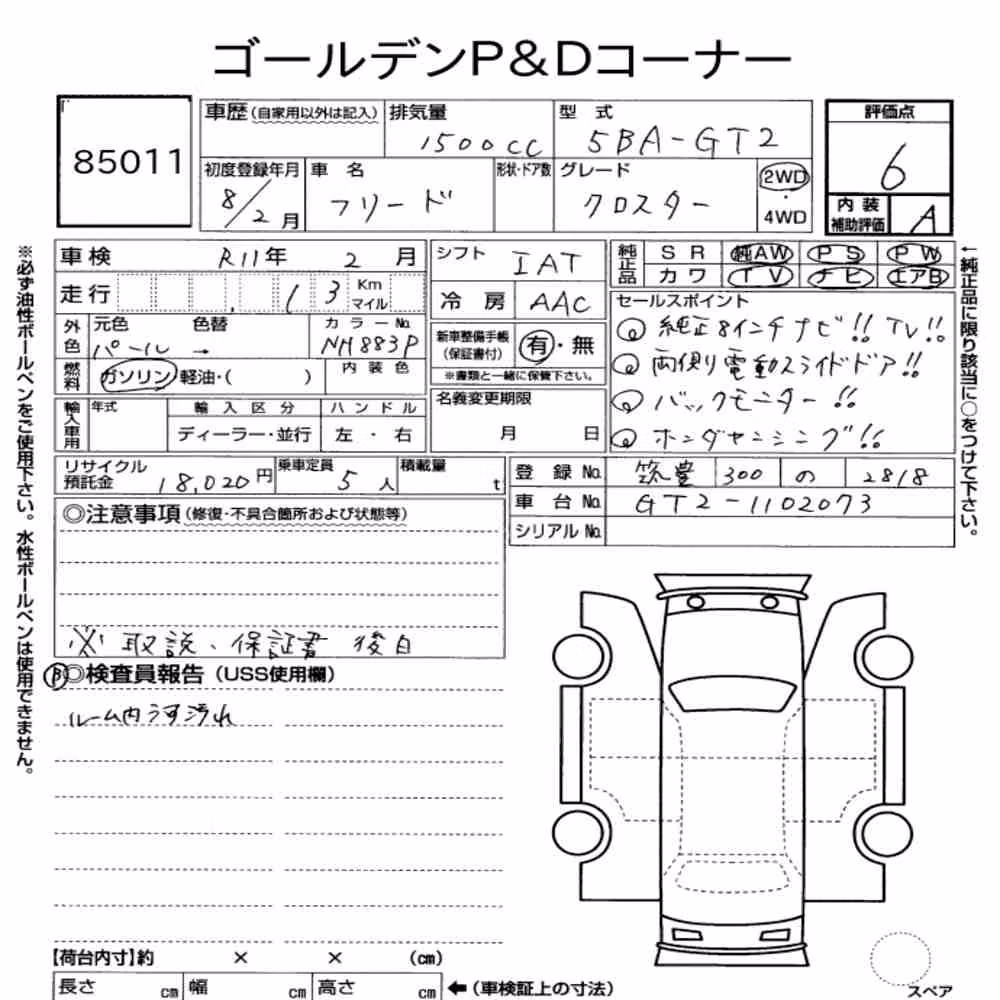 ゴールデンP&Dコーナー
85011
車歴(自家用以外は記入) 排気量 1500cc 型式 5BA-GT2 評価点 6
初度登録年月 8/2月 車名 フリード 形状・ドア数 グレード クロスター 2WD・4WD 内装補助評価 A
車検 R11年 2月
走行 13 Km マイル
外色 元色 パール 色替 → カラーNo. NH883P
燃料 ガソリン 軽油・( ) 内装色
輸入車用 年式 輸入区分 ディーラー・並行 ハンドル 左・右
シフト IAT
冷房 AAC
新車整備手帳(保証書付) 有・無
※書類と一緒に保管下さい。
名義変更期限 月 日
純正品 SR 純AW PS PW
カワ TV ナビ エアB
セールスポイント
純正8インチナビ!! TV!!
両側電動スライドドア!!
バックモニター!!
ホンダセンシング!!
リサイクル預託金 18,020円 乗車定員 5人 積載量 t
登録No. 筑豊 300 の 2818
車台No. GT2-1102073
シリアルNo.
◎注意事項(修復・不具合箇所および状態等)
※ 取説、保証書 後日
◎検査員報告(USS使用欄)
ルーム内うす汚れ
【荷台内寸】約 × × (cm)
長さ cm 幅 cm 高さ cm ←(車検証上の寸法)
スペア
※必ず油性ボールペンをご使用下さい。水性ボールペンは使用できません。
←純正品に限り該当に○をつけて下さい。